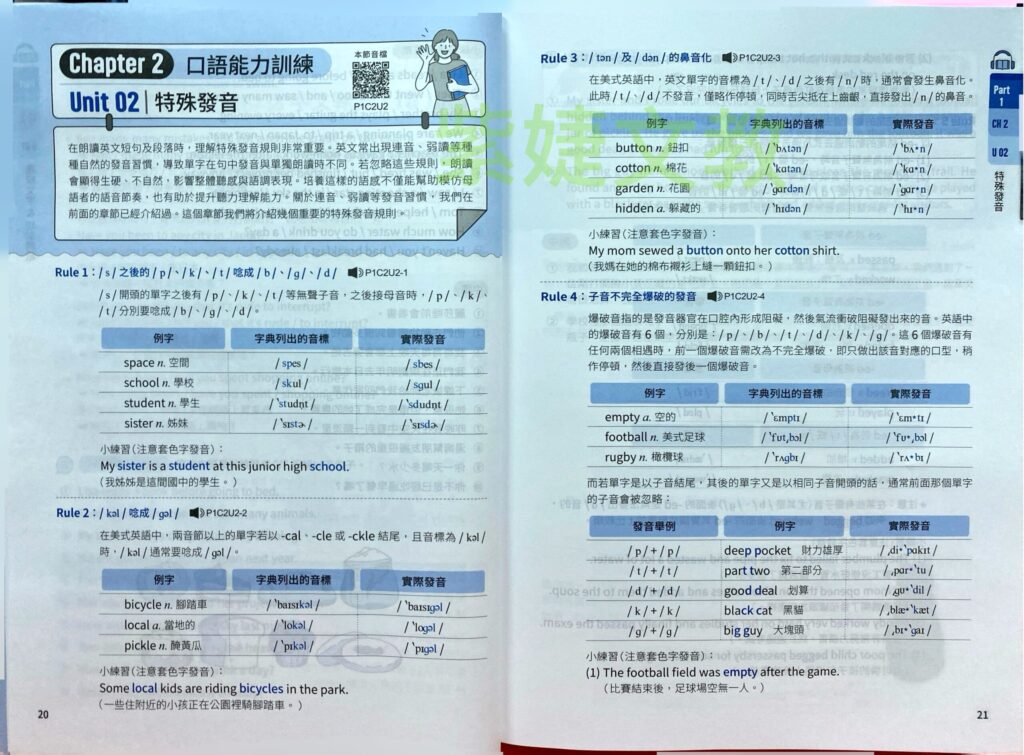 Chapter 2 口語能力訓練
本節音檔
P1C2U2
Unit 02 特殊發音
在朗讀英文短句及段落時，理解特殊發音規則非常重要。英文常出現連音、弱讀等種
種自然的發音習慣，導致單字在句中發音與單獨朗讀時不同。若忽略這些規則，朗讀
會顯得生硬、不自然，影響整體聽感與語調表現。培養這樣的語感不僅能幫助模仿母
語者的語音節奏，也有助於提升聽力理解能力。關於連音、弱讀等發音習慣，我們在
前面的章節已經介紹過。這個章節我們將介紹幾個重要的特殊發音規則。
Rule 1：/ s / 之後的 / p /、/ k /、/ t / 唸成 / b /、/ g /、/ d / P1C2U2-1
/ s / 開頭的單字之後有 / p /、/ k /、/ t / 等無聲子音，之後接母音時，/ p /、/ k /、
/ t / 分別要唸成 / b /、/ g /、/ d /。
例字 字典列出的音標 實際發音
space n. 空間 / spes / / sbes /
school n. 學校 / skul / / sgul /
student n. 學生 / ˋstudn̩t / / ˋsdudn̩t /
sister n. 姊妹 / ˋsɪstɚ / / ˋsɪsdɚ /
小練習（注意套色字發音）：
My sister is a student at this junior high school.
（我姊姊是這間國中的學生。）
Rule 2：/ kəl / 唸成 / gəl / P1C2U2-2
在美式英語中，兩音節以上的單字若以 -cal、-cle 或 -ckle 結尾，且音標為 / kəl /
時，/ kəl / 通常要唸成 / gəl /。
例字 字典列出的音標 實際發音
bicycle n. 腳踏車 / ˋbaɪsɪkəl / / ˋbaɪsɪgəl /
local a. 當地的 / ˋlokəl / / ˋlogəl /
pickle n. 醃黃瓜 / ˋpɪkəl / / ˋpɪgəl /
小練習（注意套色字發音）：
Some local kids are riding bicycles in the park.
（一些住附近的小孩正在公園裡騎腳踏車。）
20
Rule 3：/ tən / 及 / dən / 的鼻音化 P1C2U2-3
在美式英語中，英文單字的音標為 / t /、/ d / 之後有 / n / 時，通常會發生鼻音化。
此時 / t /、/ d / 不發音，僅略作停頓，同時舌尖抵在上齒齦，直接發出 / n / 的鼻音。
例字 字典列出的音標 實際發音
button n. 鈕扣 / ˋbʌtən / / ˋbʌ•n /
cotton n. 棉花 / ˋkɑtən / / ˋkɑ•n /
garden n. 花園 / ˋgɑrdən / / ˋgɑr•n /
hidden a. 躲藏的 / ˋhɪdən / / ˋhɪ•n /
小練習（注意套色字發音）：
My mom sewed a button onto her cotton shirt.
（我媽在她的棉布襯衫上縫一顆鈕扣。）
Rule 4：子音不完全爆破的發音 P1C2U2-4
爆破音指的是發音器官在口腔內形成阻礙，然後氣流衝破阻礙發出來的音。英語中
的爆破音有 6 個，分別是：/ p /、/ b /、/ t /、/ d /、/ k /、/ g /。這 6 個爆破音有
任何兩個相遇時，前一個爆破音需改為不完全爆破，即只做出該音對應的口型，稍
作停頓，然後直接發後一個爆破音。
例字 字典列出的音標 實際發音
empty a. 空的 / ˋɛmptɪ / / ˋɛm•tɪ /
football n. 美式足球 / ˋfʊt͵bɔl / / ˋfʊ•͵bɔl /
rugby n. 橄欖球 / ˋrʌgbɪ / / ˋrʌ•bɪ /
而若單字是以子音結尾，其後的單字又是以相同子音開頭的話，通常前面那個單字
的子音會被忽略：
發音舉例 例字 實際發音
/ p / + / p / deep pocket 財力雄厚 / ͵di•ˋpɑkɪt /
/ t / + / t / part two 第二部分 / ͵pɑr•ˋtu /
/ d / + / d / good deal 划算 / ͵gʊ•ˋdil /
/ k / + / k / black cat 黑貓 / ͵blæ•ˋkæt /
/ g / + / g / big guy 大塊頭 / ͵bɪ•ˋgaɪ /
小練習（注意套色字發音）：
(1) The football field was empty after the game.
（比賽結束後，足球場空無一人。）
21
Part
1
CH 2
U 02
特殊發音
紫婕文教